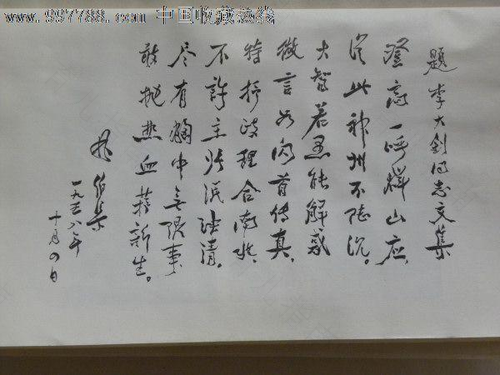 www.997788.com 中国收藏热线
题李大钊同志文集
登高一呼群山应，
从此神州不陆沉。
大智若愚能解惑
微言如闪首传真。
特抒政理合南北，
不许主张泯浊清。
尽有胸中无限事
敢抛热血新生。
林伯渠
一九五八年
十月四日